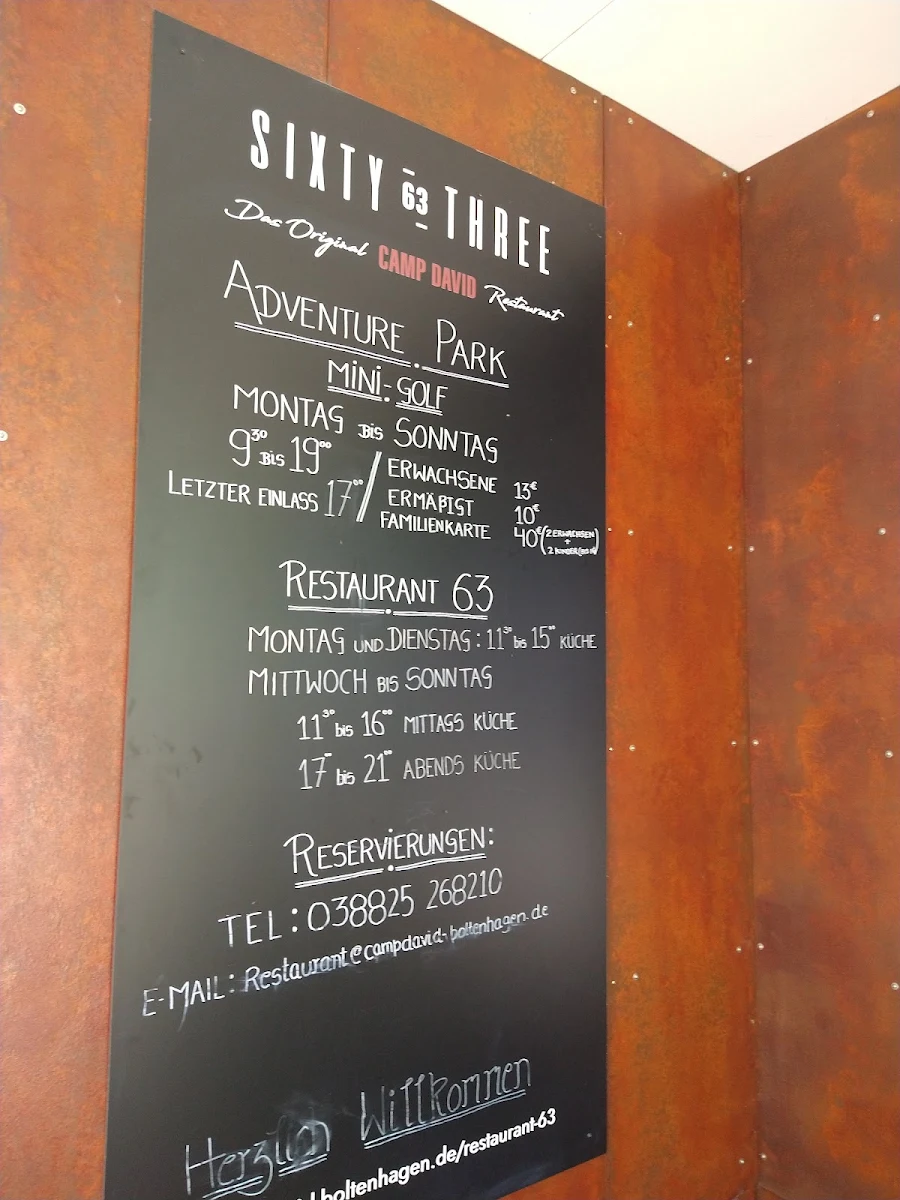 SIXTY 63 THREE
Das Original CAMP DAVID Restaurant
ADVENTURE PARK
MINI-GOLF
MONTAG BIS SONNTAG
9³⁰ BIS 19⁰⁰ / ERWACHSENE 13€
LETZTER EINLASS 17⁰⁰ / ERMÄßIGT 10€
FAMILIENKARTE 40€ (2 ERWACHSEN
+
2 KINDER
RESTAURANT 63
MONTAG UND DIENSTAG: 11³⁰ bis 15⁰⁰ KÜCHE
MITTWOCH BIS SONNTAG
11³⁰ bis 16⁰⁰ MITTAGS KÜCHE
17⁰⁰ bis 21⁰⁰ ABENDS KÜCHE
RESERVIERUNGEN:
TEL: 038825 268210
E-MAIL: Restaurant@campdavid-boltenhagen.de
Herzlich Willkommen
boltenhagen.de/restaurant-63